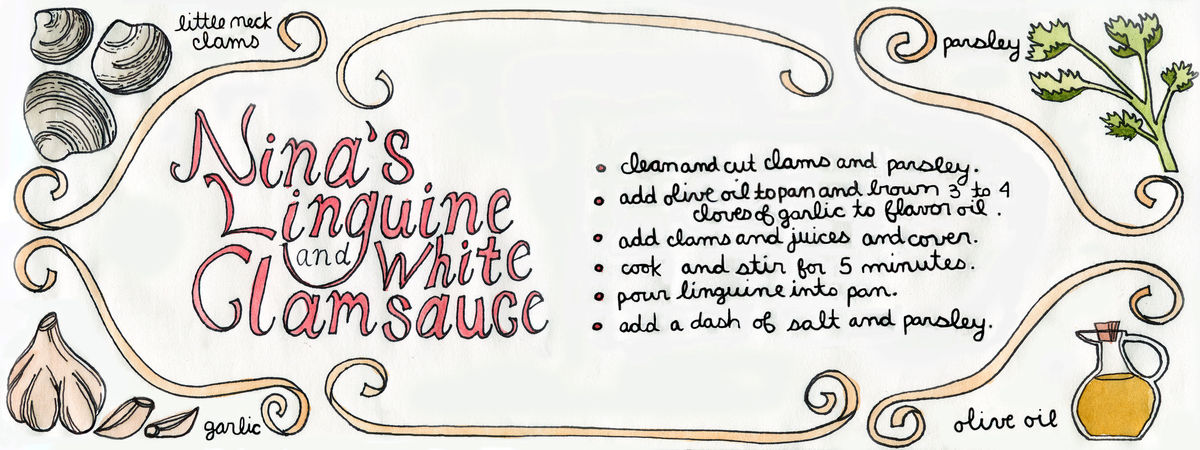 little neck
clams
parsley
Nina's
Linguine
and White
Clam sauce
• clean and cut clams and parsley.
• add olive oil to pan and brown 3 to 4
cloves of garlic to flavor oil.
• add clams and juices and cover.
• cook and stir for 5 minutes.
• pour linguine into pan.
• add a dash of salt and parsley.
garlic
olive oil